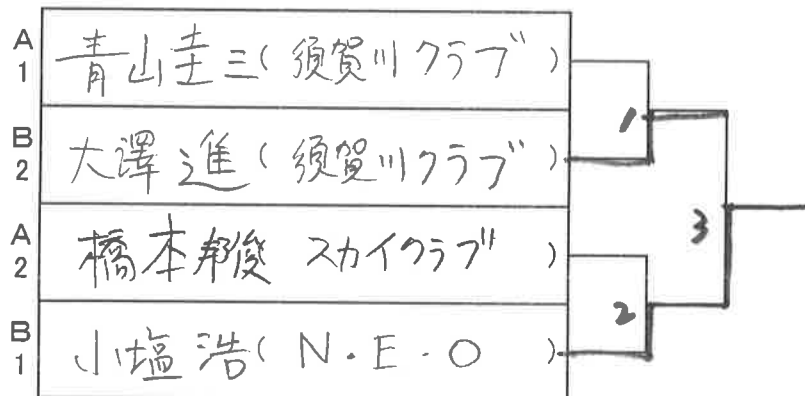 A1 青山圭三(須賀川クラブ) 1
B2 大澤進(須賀川クラブ)
3
A2 橋本邦俊 スカイクラブ) 2
B1 小塩浩(N・E・O)